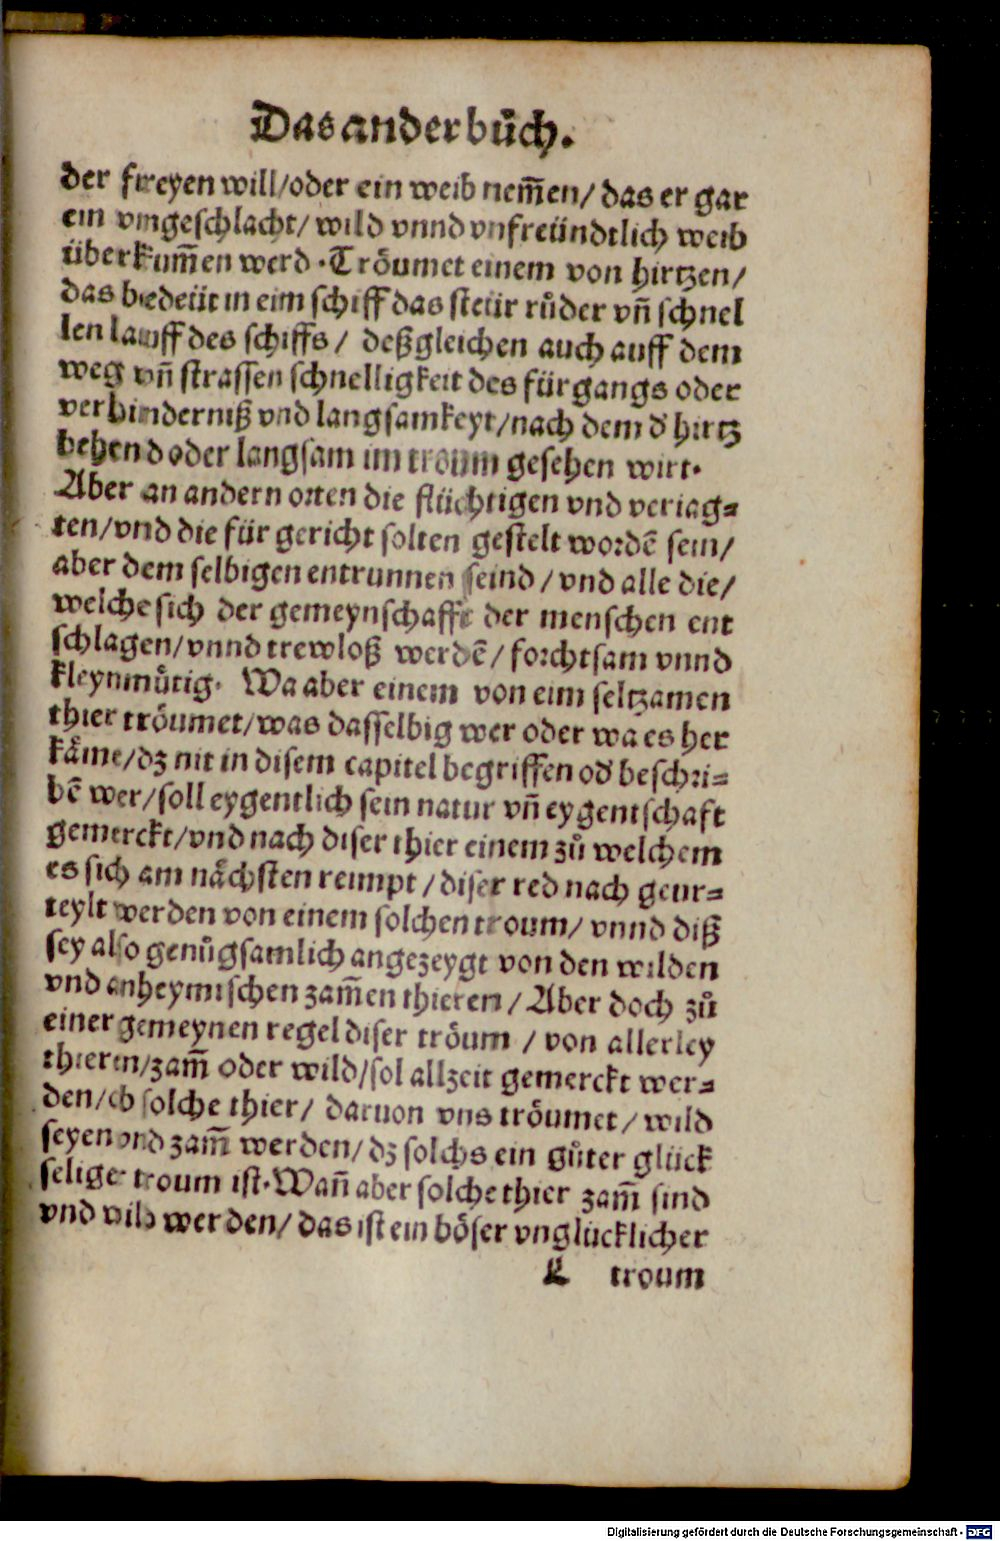 Das ander bůch.
der freyen will/oder ein weib nem̄en/ das er gar
ein vngeschlacht/ wild vnnd vnfreündtlich weib
überkum̄en werd. Trö̈umet einem von hirtzen/
das bedeüt in eim schiff das steür růder vn̄ schnel
len lauff des schiffs/ deßgleichen auch auff dem
weg vn̄ strassen schnelligkeit des fürgangs oder
verhinderniß vnd langsamkeyt/nach dem d' hirtz
behend oder langsam im troum gesehen wirt.
Aber an andern orten die flüchtigen vnd veriag=
ten/vnd die für gericht solten gestelt wordē sein/
aber dem selbigen entrunnen seind/vnd alle die/
welche sich der gemeynschafft der menschen ent
schlagen/vnnd trewloß werdē/ forchtsam vnnd
kleynmůtig. Wa aber einem von eim seltzamen
thier tröumet/was dasselbig wer oder wa es her
käme/dz nit in disem capitel begriffen od' beschri=
bē wer/soll eygentlich sein natur vn̄ eygentschaft
gemerckt/vnd nach diser thier einem zů welchem
es sich am nächsten reimpt/diser red nach geur=
teylt werden von einem solchen troum/ vnnd diß
sey also genůgsamlich angezeygt von den wilden
vnd anheymischen zam̄en thieren/Aber doch zů
einer gemeynen regel diser tröum / von allerley
thieren/zam̄ oder wild/sol allzeit gemerckt wer=
den/ob solche thier/ daruon vns tröumet/wild
seyen vnd zam̄ werden/dz solchs ein gůter glück
seliger troum ist. Wan̄ aber solche thier zam̄ sind
vnd wild werden/ das ist ein böser vnglücklicher
K troum
Digitalisierung gefördert durch die Deutsche Forschungsgemeinschaft - DFG